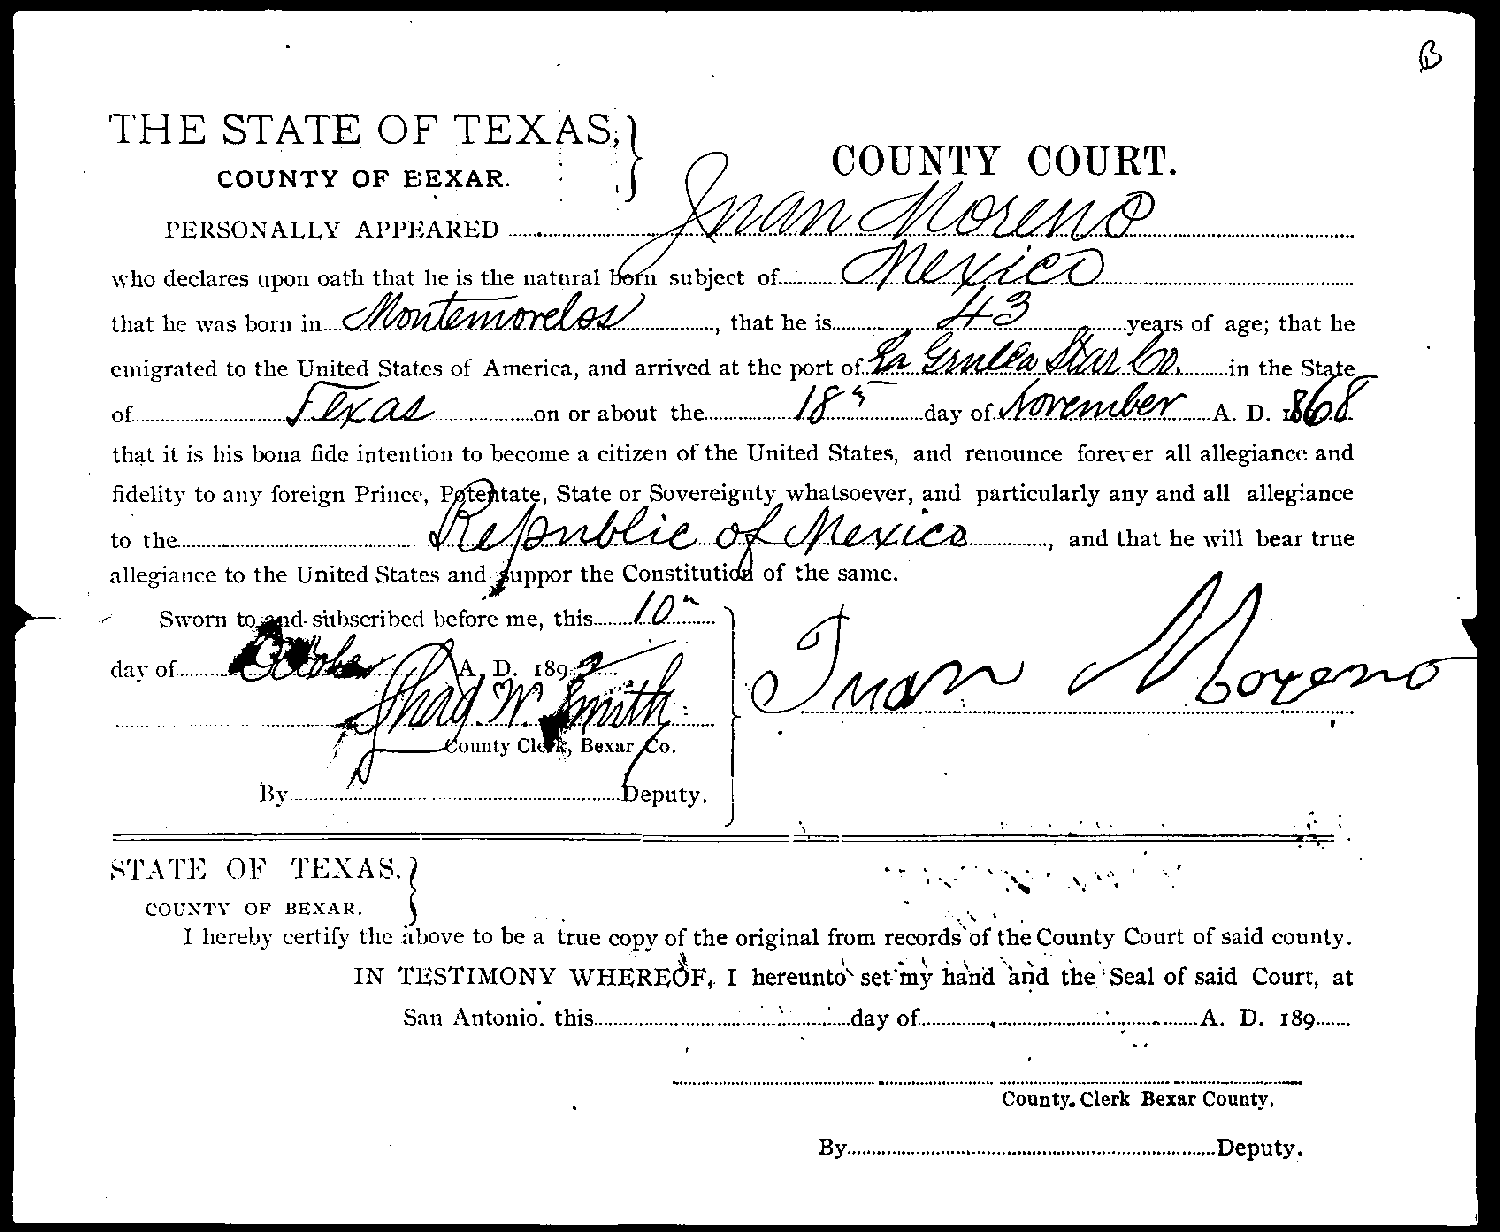 B
THE STATE OF TEXAS,
COUNTY OF BEXAR.
COUNTY COURT.
PERSONALLY APPEARED Juan Moreno
who declares upon oath that he is the natural born subject of Mexico
that he was born in Montemorelos, that he is 43 years of age; that he
emigrated to the United States of America, and arrived at the port of La Grulla Star Co. in the State
of Texas on or about the 18th day of November A. D. 1868
that it is his bona fide intention to become a citizen of the United States, and renounce forever all allegiance and
fidelity to any foreign Prince, Potentate, State or Sovereignty whatsoever, and particularly any and all allegiance
to the Republic of Mexico, and that he will bear true
allegiance to the United States and suppor the Constitution of the same.
Sworn to and subscribed before me, this 10"
day of October A. D. 1892
Thad. W. Smith
County Clerk, Bexar Co.
By Deputy.
Juan Moreno
STATE OF TEXAS.
COUNTY OF BEXAR.
I hereby certify the above to be a true copy of the original from records of the County Court of said county.
IN TESTIMONY WHEREOF, I hereunto set my hand and the Seal of said Court, at
San Antonio. this day of A. D. 189
County Clerk Bexar County,
By Deputy.